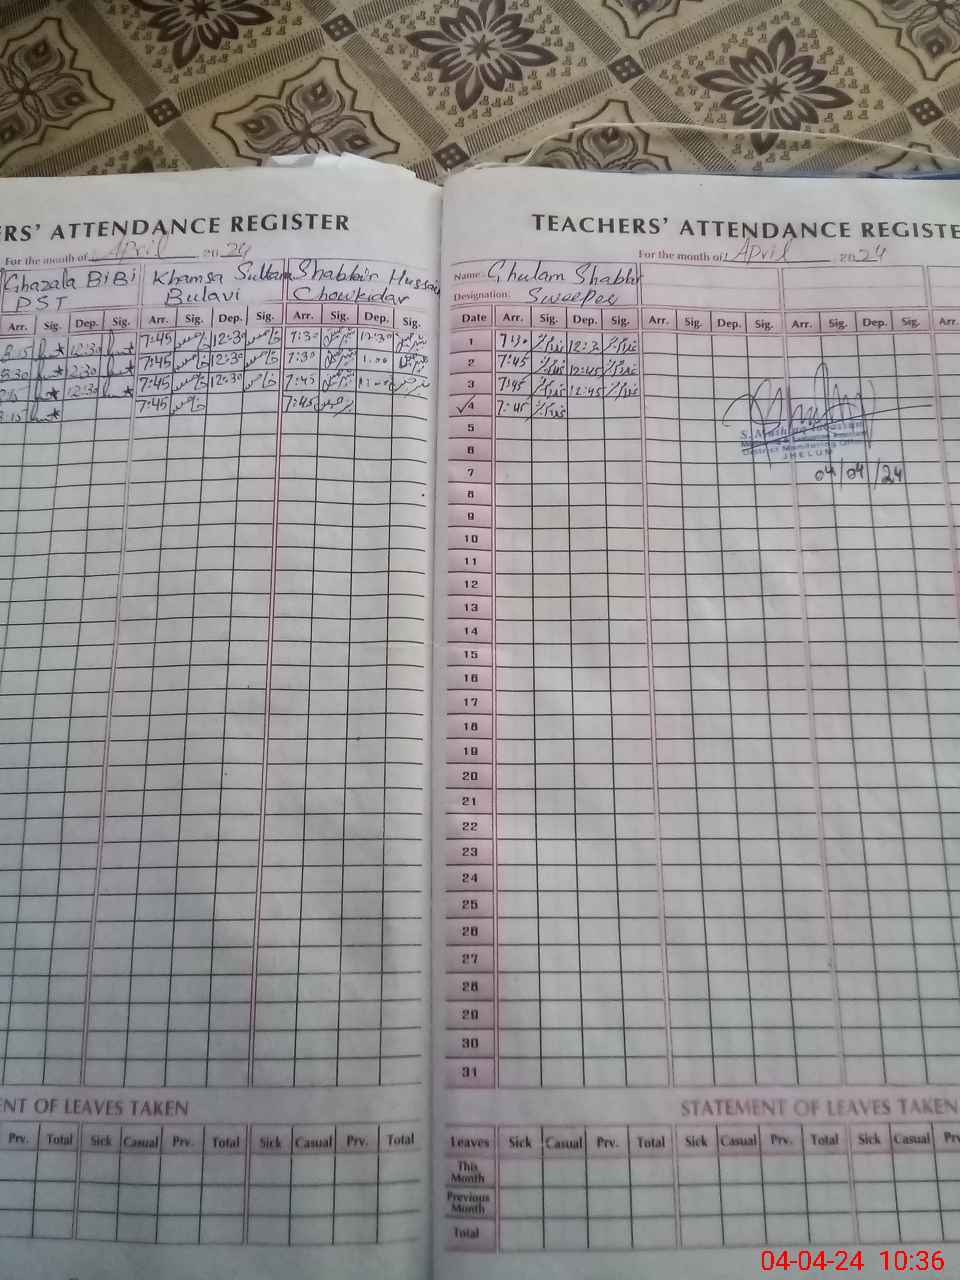 ERS' ATTENDANCE REGISTER
For the month of April 2024
Ghazala BiBi
PST
Khamsa Sultana
Bulavi
Shabbir Hussain
Chowkidar
Arr. Sig. Dep. Sig. Arr. Sig. Dep. Sig. Arr. Sig. Dep. Sig.
8:15 12:30 7:45 12:30 7:30 12:30
8:30 12:30 7:45 12:30 7:30 1:00
12:30 7:45 12:30 7:45
8:15 7:45 7:45
ENT OF LEAVES TAKEN
Prv. Total Sick Casual Prv. Total Sick Casual Prv. Total
TEACHERS' ATTENDANCE REGISTE
For the month of April 2024
Name: Ghulam Shabbir
Designation: Sweeper
Date Arr. Sig. Dep. Sig. Arr. Sig. Dep. Sig. Arr. Sig. Dep. Sig. Arr.
1 7:30 12:30
2 7:45 12:45
3 7:45 12:45
4 7:45
5
6
7
8
9
10
11
12
13
14
15
16
17
18
19
20
21
22
23
24
25
26
27
28
29
30
31
District Monitoring
JHELUM
04/04/24
STATEMENT OF LEAVES TAKEN
Leaves Sick Casual Prv. Total Sick Casual Prv. Total Sick Casual Prv
This Month
Previous Month
Total
04-04-24 10:36